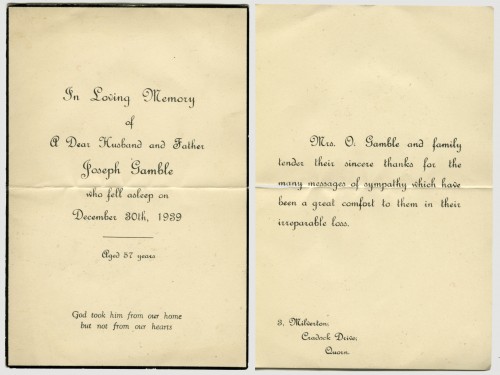 In Loving Memory
of
A Dear Husband and Father
Joseph Gamble
who fell asleep on
December 30th, 1939
Aged 57 years
God took him from our home
but not from our hearts
Mrs. O. Gamble and family
tender their sincere thanks for the
many messages of sympathy which have
been a great comfort to them in their
irreparable loss.
3, Milverton,
Cradock Drive,
Quorn.